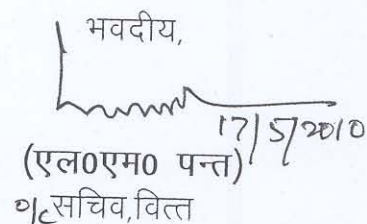 भवदीय,
17/5/2010
(एल0एम0 पन्त)
सचिव,वित्त